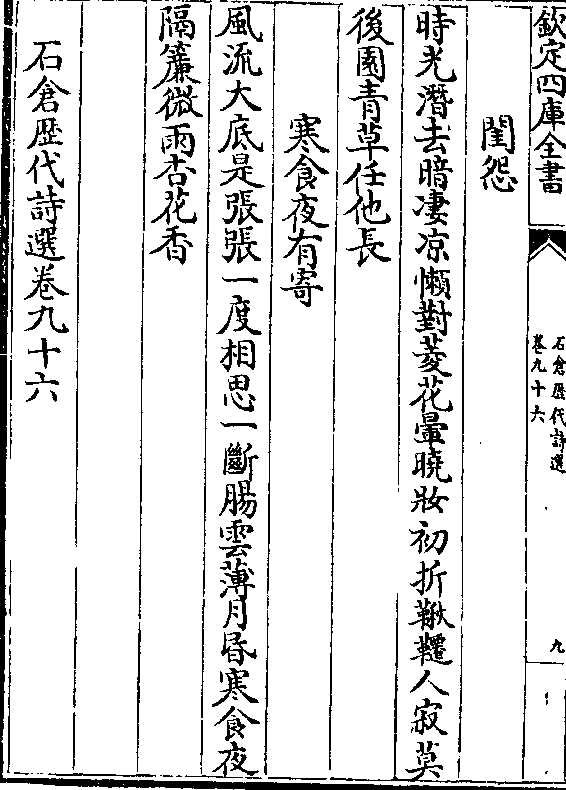 欽定四庫全書
石倉歴代詩選
卷九十六
九
閨怨
時光潛去暗凄凉懶對菱花暈曉妝初折鞦韆人寂莫
後園青草任他長
寒食夜有寄
風流大底是張張一度相思一斷腸雲薄月昏寒食夜
隔簾微雨杏花香
石倉歴代詩選卷九十六